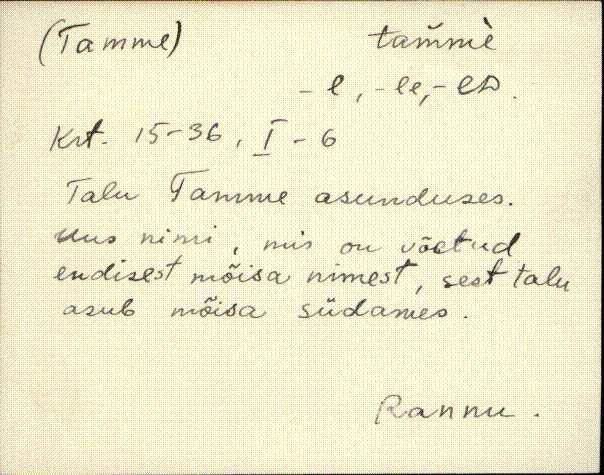 (Tamme) tam̆mè
- l, - le, - lD.
Krt. 15-36, I - 6
Talu Tamme asunduses.
Uus nimi, mis on võetud
endisest mõisa nimest, sest talu
asub mõisa südames.
Rannu.